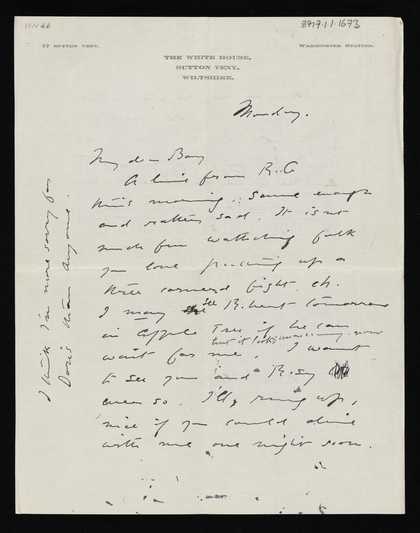 8717.1.1.1673
17 SUTTON VENY.
WARMINSTER STATION.
THE WHITE HOUSE,
SUTTON VENY,
WILTSHIRE.
Monday.
My dear Boy
A line from R.C
this morning. Sane enough
and rather sad. It is not
much fun watching folk
you love putting up a
three cornered fight, eh.
I may see R. tomorrow
in Apple Tree if he can
but it looks
wait for me. I want
to see you and
ever so. I'll ring up,
nice if you could dine
with me one night soon.
I think I'm more sorry for
Doris than anyone.